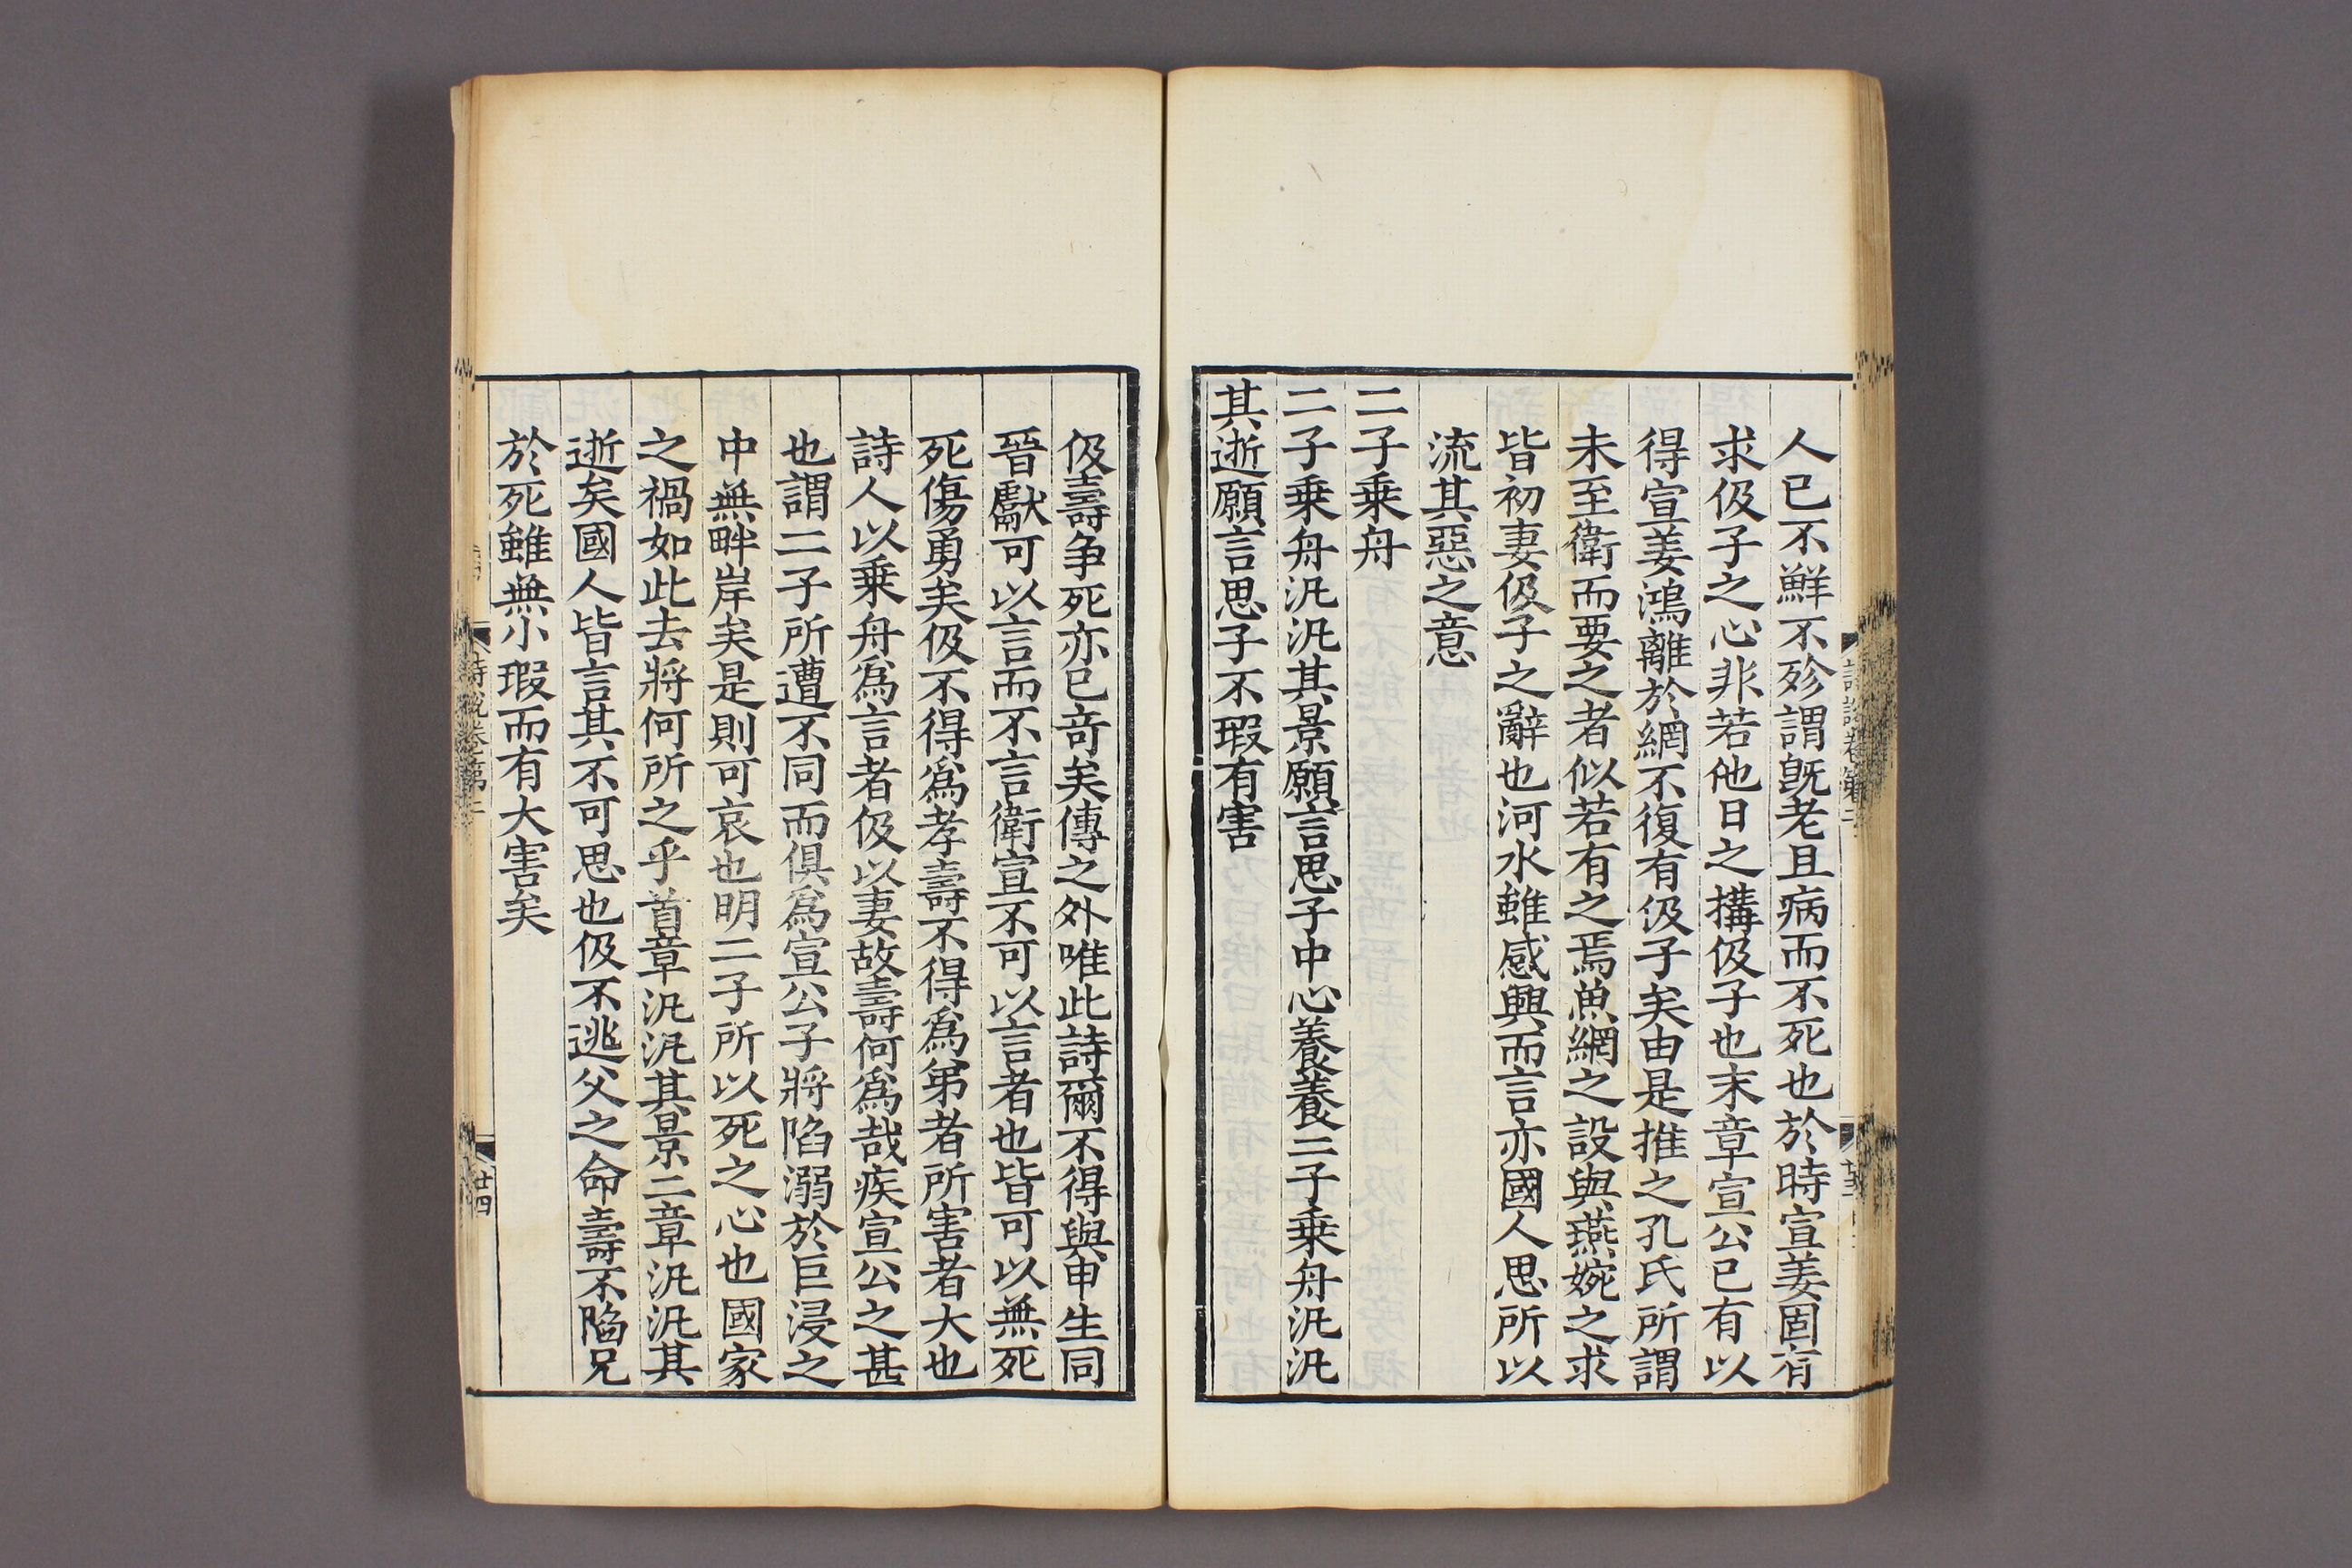 人已不鮮不殄謂旣老且病而不死也於時宣姜固有
求伋子之心非若他日之搆伋子也末章宣公已有以
得宣姜鴻離於網不復有伋子矣由是推之孔氏所謂
未至衛而要之者似若有之焉魚網之設與燕婉之求
皆初妻伋子之辭也河水雖感興而言亦國人思所以
流其惡之意
二子乗舟
二子乗舟汎汎其景願言思子中心養養二子乗舟汎汎
其逝願言思子不瑕有害
伋壽争死亦已竒矣傳之外唯此詩爾不得與申生同
晉獻可以言而不言衛宣不可以言者也皆可以無死
死傷勇矣伋不得爲孝壽不得爲弟者所害者大也
詩人以乗舟爲言者伋以妻故壽何爲哉疾宣公之甚
也謂二子所遭不同而俱爲宣公子將陷溺於巨浸之
中無畔岸矣是則可哀也明二子所以死之心也國家
之禍如此去將何所之乎首章汎汎其景二章汎汎其
逝矣國人皆言其不可思也伋不逃父之命壽不陷兄
於死雖無小瑕而有大害矣
詩說卷第二
廿四